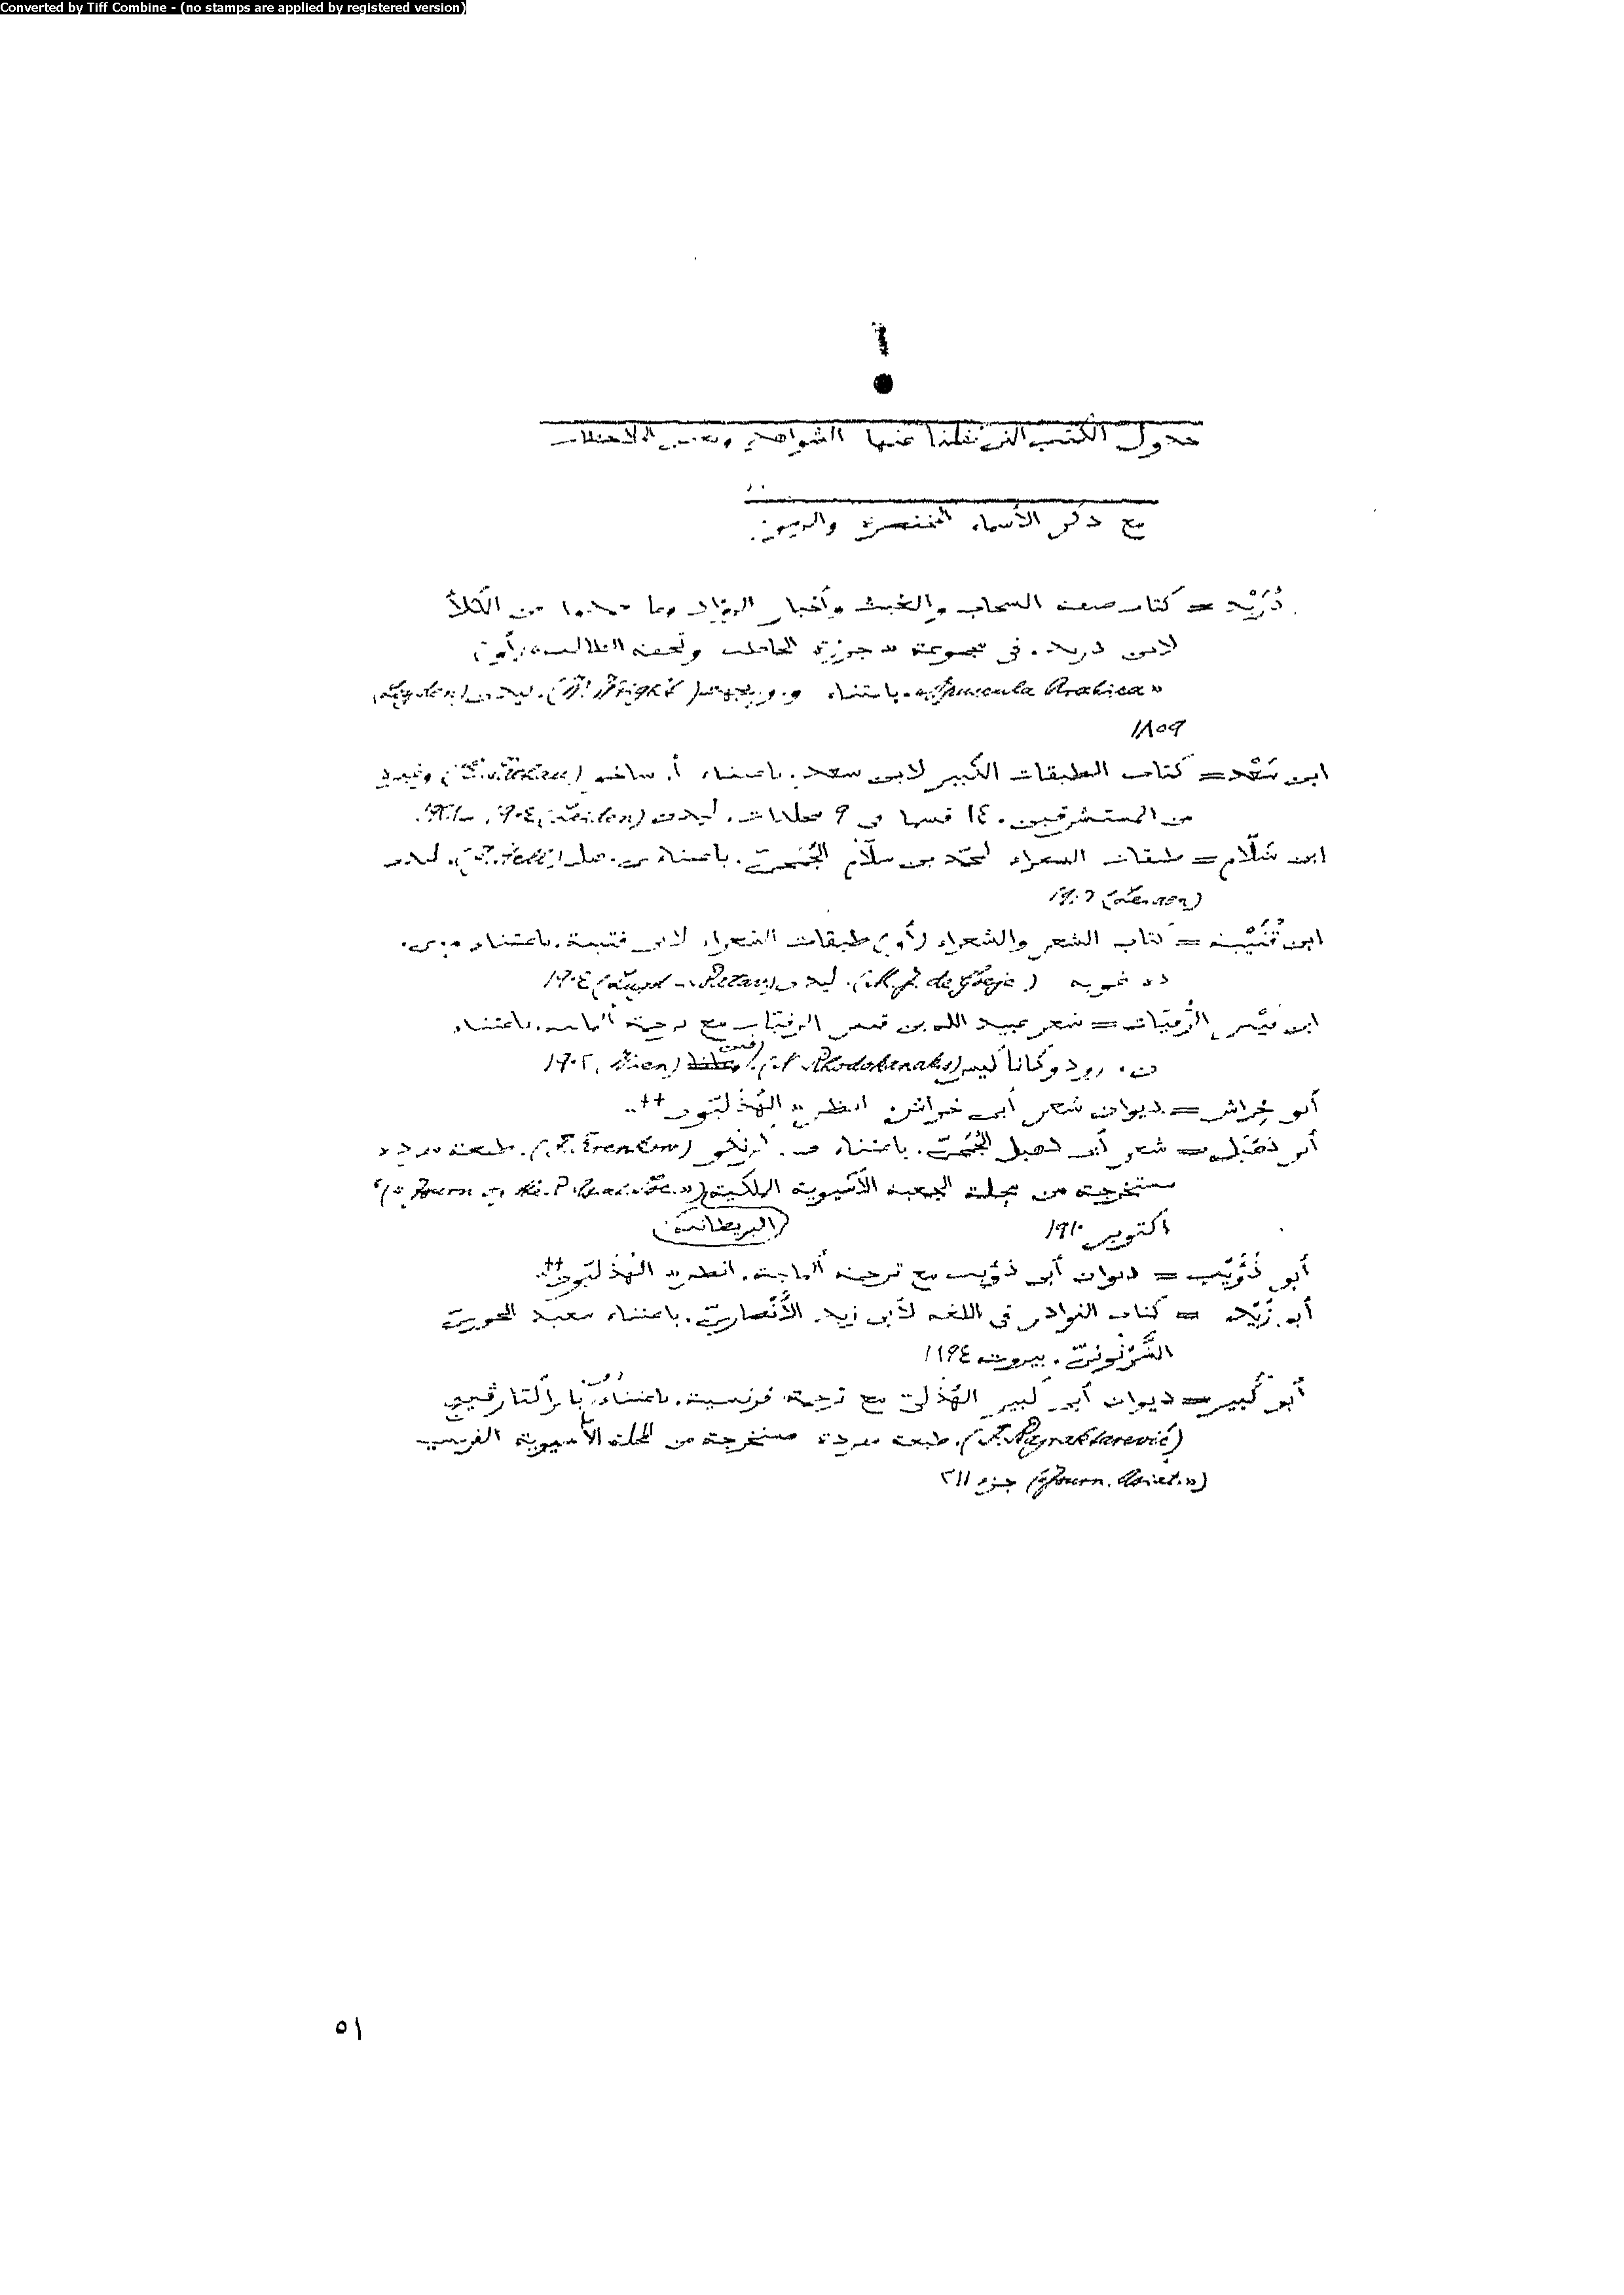 Converted by Tiff Combine - (no stamps are applied by registered version)
جدول الكتب التي نقلنا عنها الشواهد وبعض الملاحظات
مع ذكر الأسماء المختصرة والرموز.
دُرَيْد = كتاب صفة السحاب والغيث وأخبار الروّاد وما حمدوا من الكلأ
لابن دريد. في مجموعة « جرزة الحاطب وتحفة الطالب» (أو:
«Opuscula Arabica». باعتناء و. (W. Wright). ليدن (Leyden)
١٨٥٩
ابن سَعْد = كتاب الطبقات الكبير لابن سعد. باعتناء أ. ساخو (E. Sachau) وغيره
من المستشرقين. ١٤ قسما في ٩ مجلدات. ليدن (Leiden) ١٩٠٤ -
ابن سَلّام = طبقات الشعراء لمحمّد بن سلّام الجُمَحيّ. باعتناء (J. Hell). ليدن
(Leiden)
ابن قُتَيْبة = كتاب الشعر والشعراء (أو) طبقات الشعراء لابن قتيبة. باعتناء م. ي.
ده غويه (M. J. de Goeje). ليدن ١٩٠٤
ابن قيس الرُّقَيّات = شعر عبيد الله بن قيس الرقيّات مع ترجمة ألمانية. باعتناء
ن. رودوكاناكيس (N. Rhodokanakis). (Wien) ١٩٠٢
أبو خِراش = ديوان شعر أبي خراش. انظر « الهُذَليّون ++».
أبو دَهْبَل = شعر أبي دهبل الجُمَحيّ. باعتناء ف. كرنكو (F. Krenkow). طبعة مفردة
مستخرجة من مجلة الجمعية الآسيوية الملكية
البريطانية
أكتوبر ١٩١٠
أبو ذُؤَيْب = ديوان أبي ذؤيب مع ترجمة ألمانية. انظر « الهُذَليّون ++».
أبو زَيْد = كتاب النوادر في اللغة لأبي زيد الأنْصاريّ. باعتناء سعيد الخوريّ
الشَّرْتُونيّ. بيروت ١٨٩٤
أبو كَبير = ديوان أبي كبير الهُذَليّ مع ترجمة فرنسية. باعتناء
(F. Bajraktarević). طبعة مفردة مستخرجة من المجلة الآسيوية الفرنسية
(«Journ. Asiat.») جزء ٢١١
٥١